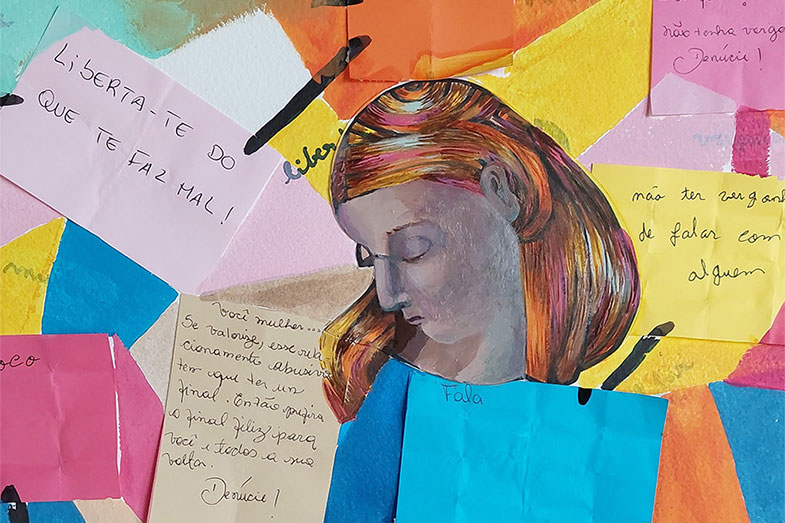 LIBERTA-TE DO
QUE TE FAZ MAL!
liber
não tenha vergo
Denúcie!
não ter vergonh
de falar com
alguem
você mulher...
Se valorize, esse rela
cionamento abusivo
tem que ter un
final. Então prefira
o final feliz para
você e todos a sua
voltar.
Denúcie!
Fala
oco